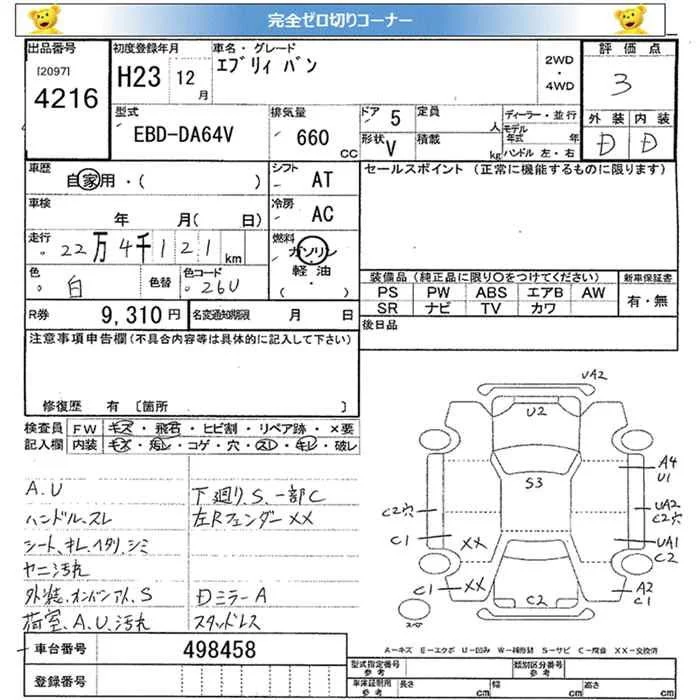 完全ゼロ切りコーナー
出品番号
[2097]
4216
初度登録年月
H23 12月
車名・グレード
エブリィ バン
2WD
・
4WD
評価点
3
型式
EBD-DA64V
排気量
660 CC
ドア 5
定員 人
形状 V
積載 kg
ディーラー・並行
モデル年式 年
ハンドル 左・右
外装 内装
D D
車歴
自家用・( )
シフト AT
車検
年 月( 日)
冷房 AC
走行
22万4千121km
燃料
ガソリン
軽油
( )
色 白 色替
色コード 26U
セールスポイント (正常に機能するものに限ります)
装備品 (純正品に限り○をつけてください)
PS PW ABS エアB AW
SR ナビ TV カワ
新車保証書
有・無
R券 9,310円
名変通知期限 月 日
後日品
注意事項申告欄(不具合内容等は具体的に記入して下さい)
修復歴 有 〔箇所 〕
検査員 FW キズ・飛石・ヒビ割・リペア跡・×要
記入欄 内装 キズ・汚レ・コゲ・穴・スレ・キレ・破レ
A.U
ハンドル.スレ
シート.キレ.ヘタリ.シミ
ヤニ汚れ
荷室.A.U.汚れ
下廻り.S.一部C
左Rフェンダー××
Dミラー A
スタッドレス
UA2
U2
S3
A4
U1
C2穴
UA2
C2穴
C1
UA1
C2
××
××
C1
C2
A2
C1
A-キズ E-エクボ U-凹み W-補修跡 S-サビ C-腐食 ××-交換済
車台番号 498458
登録番号
型式指定番号 参考
類別区分番号 参考
車庫証明用 参考
長さ cm
幅 cm
高さ cm